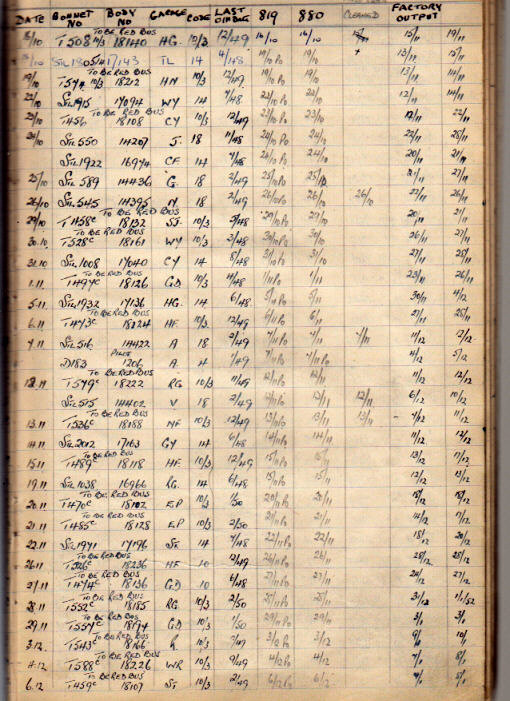 DATE BONNET NO BODY NO GARAGE CODE LAST O/H DATE 819 880 CLEANED FACTORY OUTPUT
TO BE RED BUS
18140 HG. 10/3 12/49 16/10 16/10 15/11 19/11
TL 14 4/48 19/10 13/11 15/11
TO BE RED BUS
19/10 18212 HN 10/3 12/49 19/10 Po 19/10 13/11 14/11
22/10 StL1915 17094 WY 14 7/48 22/10 Po 22/10 12/11 14/11
TO BE RED BUS
23/10 T456 18108 CY 10/3 12/49 23/10 Po 23/10 22/11
24/10 StL550 14207 J. 18 11/48 24/10 Po 24/10 22/11 28/11
StL1922 16974 CF 14 7/48 24/10 Po 24/10 20/11 21/11
25/10 StL589 14436 G. 18 2/49 25/10 Po 25/10 21/11 27/11
26/10 StL545 14395 N 18 2/49 26/10 Po 26/10 26/10 22/11 26/11
TO BE RED BUS
29/10 T458c 18132 SJ. 10/3 29/10 Po 29/10 20/11 21/11
TO BE RED BUS
30.10 T528c 18161 WY 10/3 3/48 30/10 Po 30/10 26/11 27/11
31.10 StL1008 17040 CY 14 8/48 31/10 Po 31/10 27/11 28/11
TO BE RED BUS
1.11 T494c 18126 GD 10/3 1/11 Po 1/11 23/11 26/11
5.11 StL1932 17136 HG. 14 6/48 5/11 Po 5/11 30/11 4/12
TO BE RED BUS
6.11 T473c 18224 HF. 10/3 12/49 6/11 Po 6/11 27/11 28/11
7.11 StL516 14422 A 18 2/49 7/11 Po 7/11 7/11 11/12 12/12
PILOT
D183 1206 A 4 1/49 7/11 Po 7/11 Po 4/12 5/12
TO BE RED BUS
12.11 T549c 18222 RG. 10/3 11/49 12/11 Po 12/11 11/12 12/12
StL515 14402 V 18 2/49 12/11 Po 12/11 12/11 6/12 10/12
TO BE RED BUS
13.11 T536c 18188 NF 10/3 12/49 13/11 Po 13/11 13/11 7/12 11/12
14.11 StL2012 17163 GY 14 6/48 14/11 Po 14/11 11/12 12/12
TO BE RED BUS
15.11 T489c 18118 HF. 10/3 12/49 15/11 Po 15/11 13/12 17/12
19.11 StL1038 16966 RG. 14 6/48 15/11 Po 15/11 12/12 13/12
TO BE RED BUS
20.11 T470c 18102 EP 10/3 1/50 20/11 Po 20/11 18/12
TO BE RED BUS
21.11 T485c 18128 EP 10/3 2/50 21/11 Po 21/11 14/12 17/12
22.11 StL1971 17196 14 7/48 22/11 Po 22/11 18/12 20/12
TO BE RED BUS
26.11 T526c 18236 HF 10 12/49 26/11 Po 26/11 28/12 28/12
TO BE RED BUS
27.11 T474c 18136 GD 10 6/48 27/11 Po 27/11 24/12 27/12
TO BE RED BUS
28.11 T552c 18185 RG. 10/3 2/50 28/11 Po 28/11 31/12 1/1/52
TO BE RED BUS
29.11 T557c 18194 GD 10/3 1/50 29/11 Po 29/11 3/1 3/1
TO BE RED BUS
3.12 T543c 18166 10/3 3/12 Po 3/12 9/1 10/1
TO BE RED BUS
4.12 T588c 18226 WR 10/3 9/49 4/12 Po 4/12 7/1 8/1
TO BE RED BUS
6.12 T459c 18107 10/3 2/49 6/12 Po 6/12 4/1 5/1